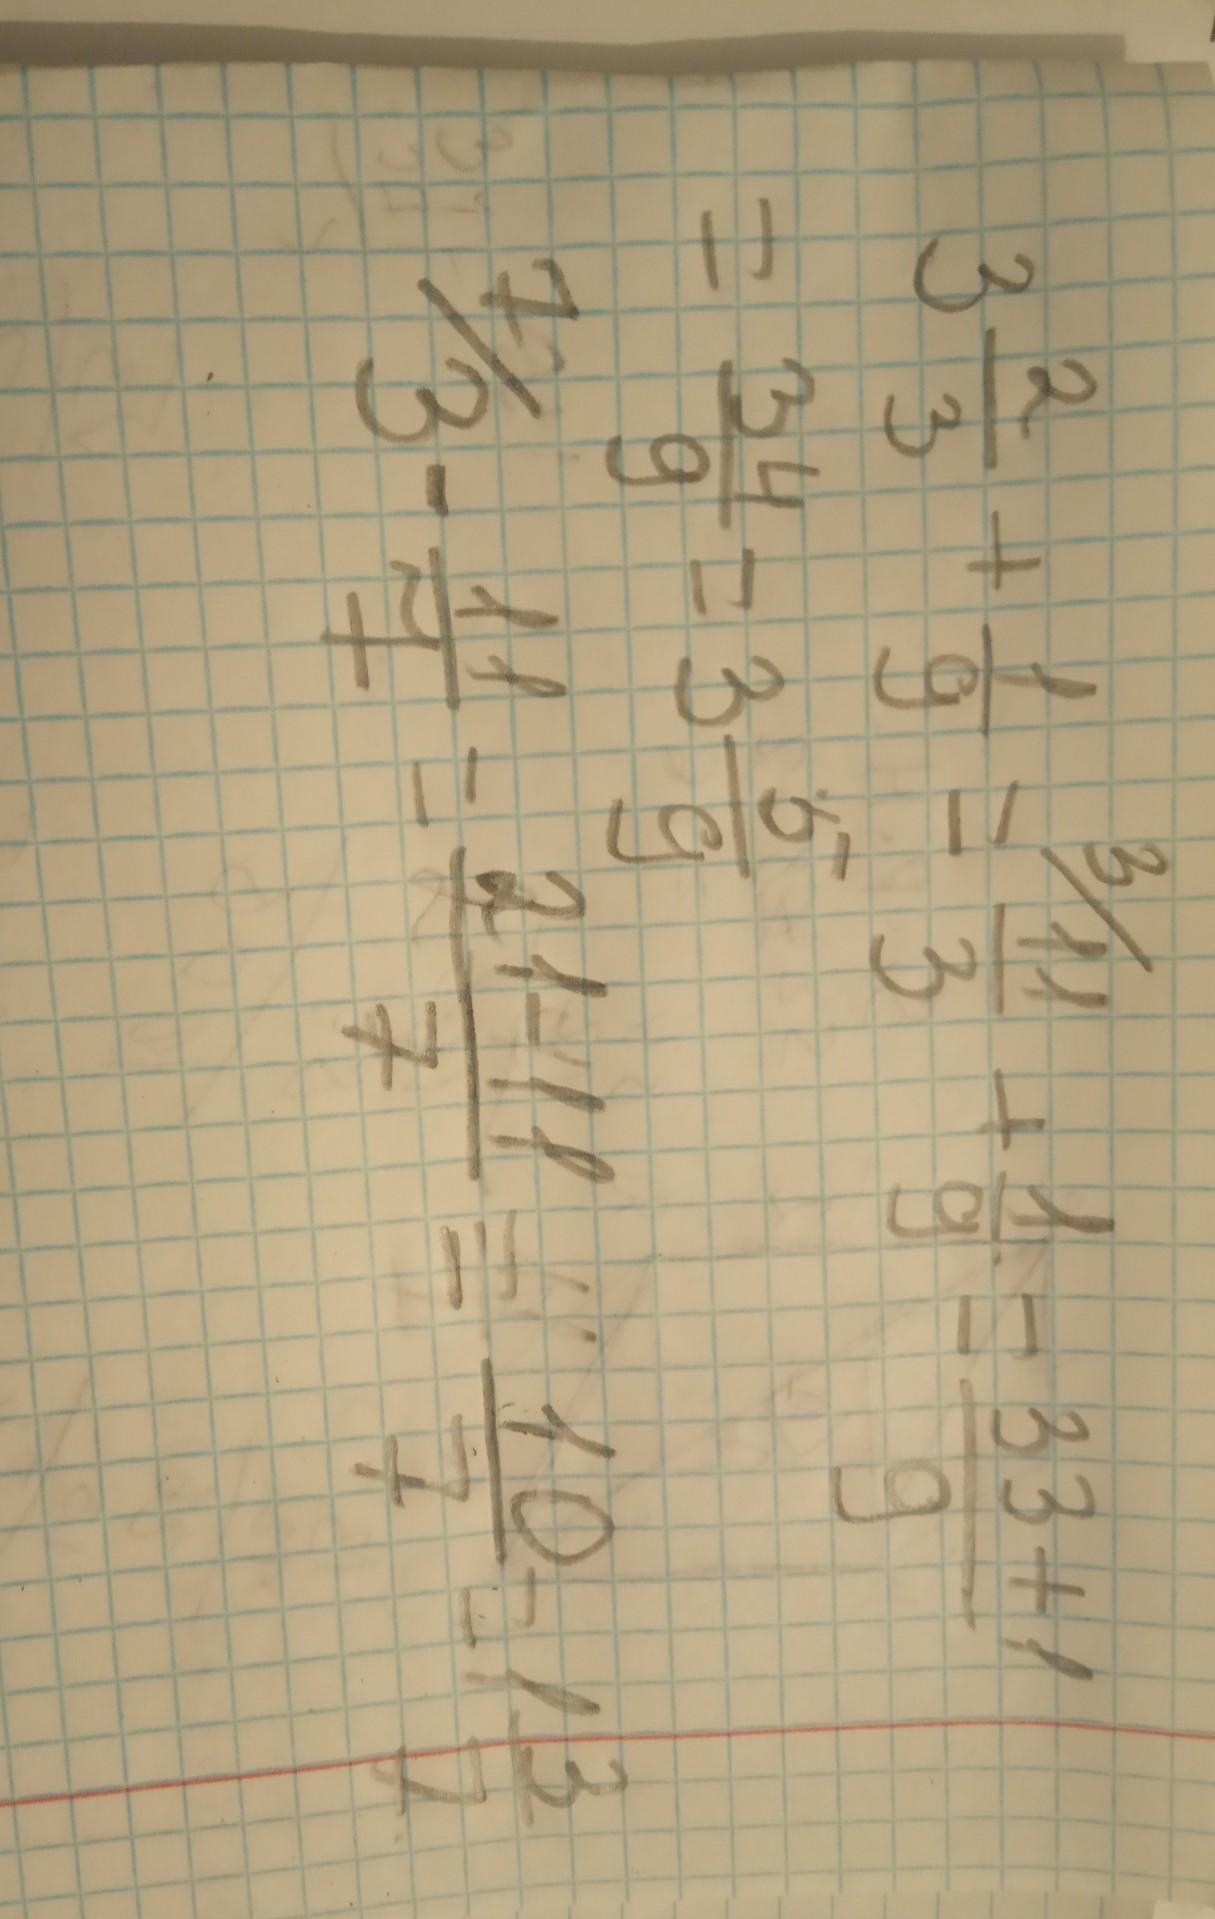 3 2/3 + 1/9 = 3/ 11/3 + 1/9 = 33+1/9
= 34/9 = 3 5/9
7/ 3 - 11/7 = 21-11/7 = 10/7 = 1 3/7